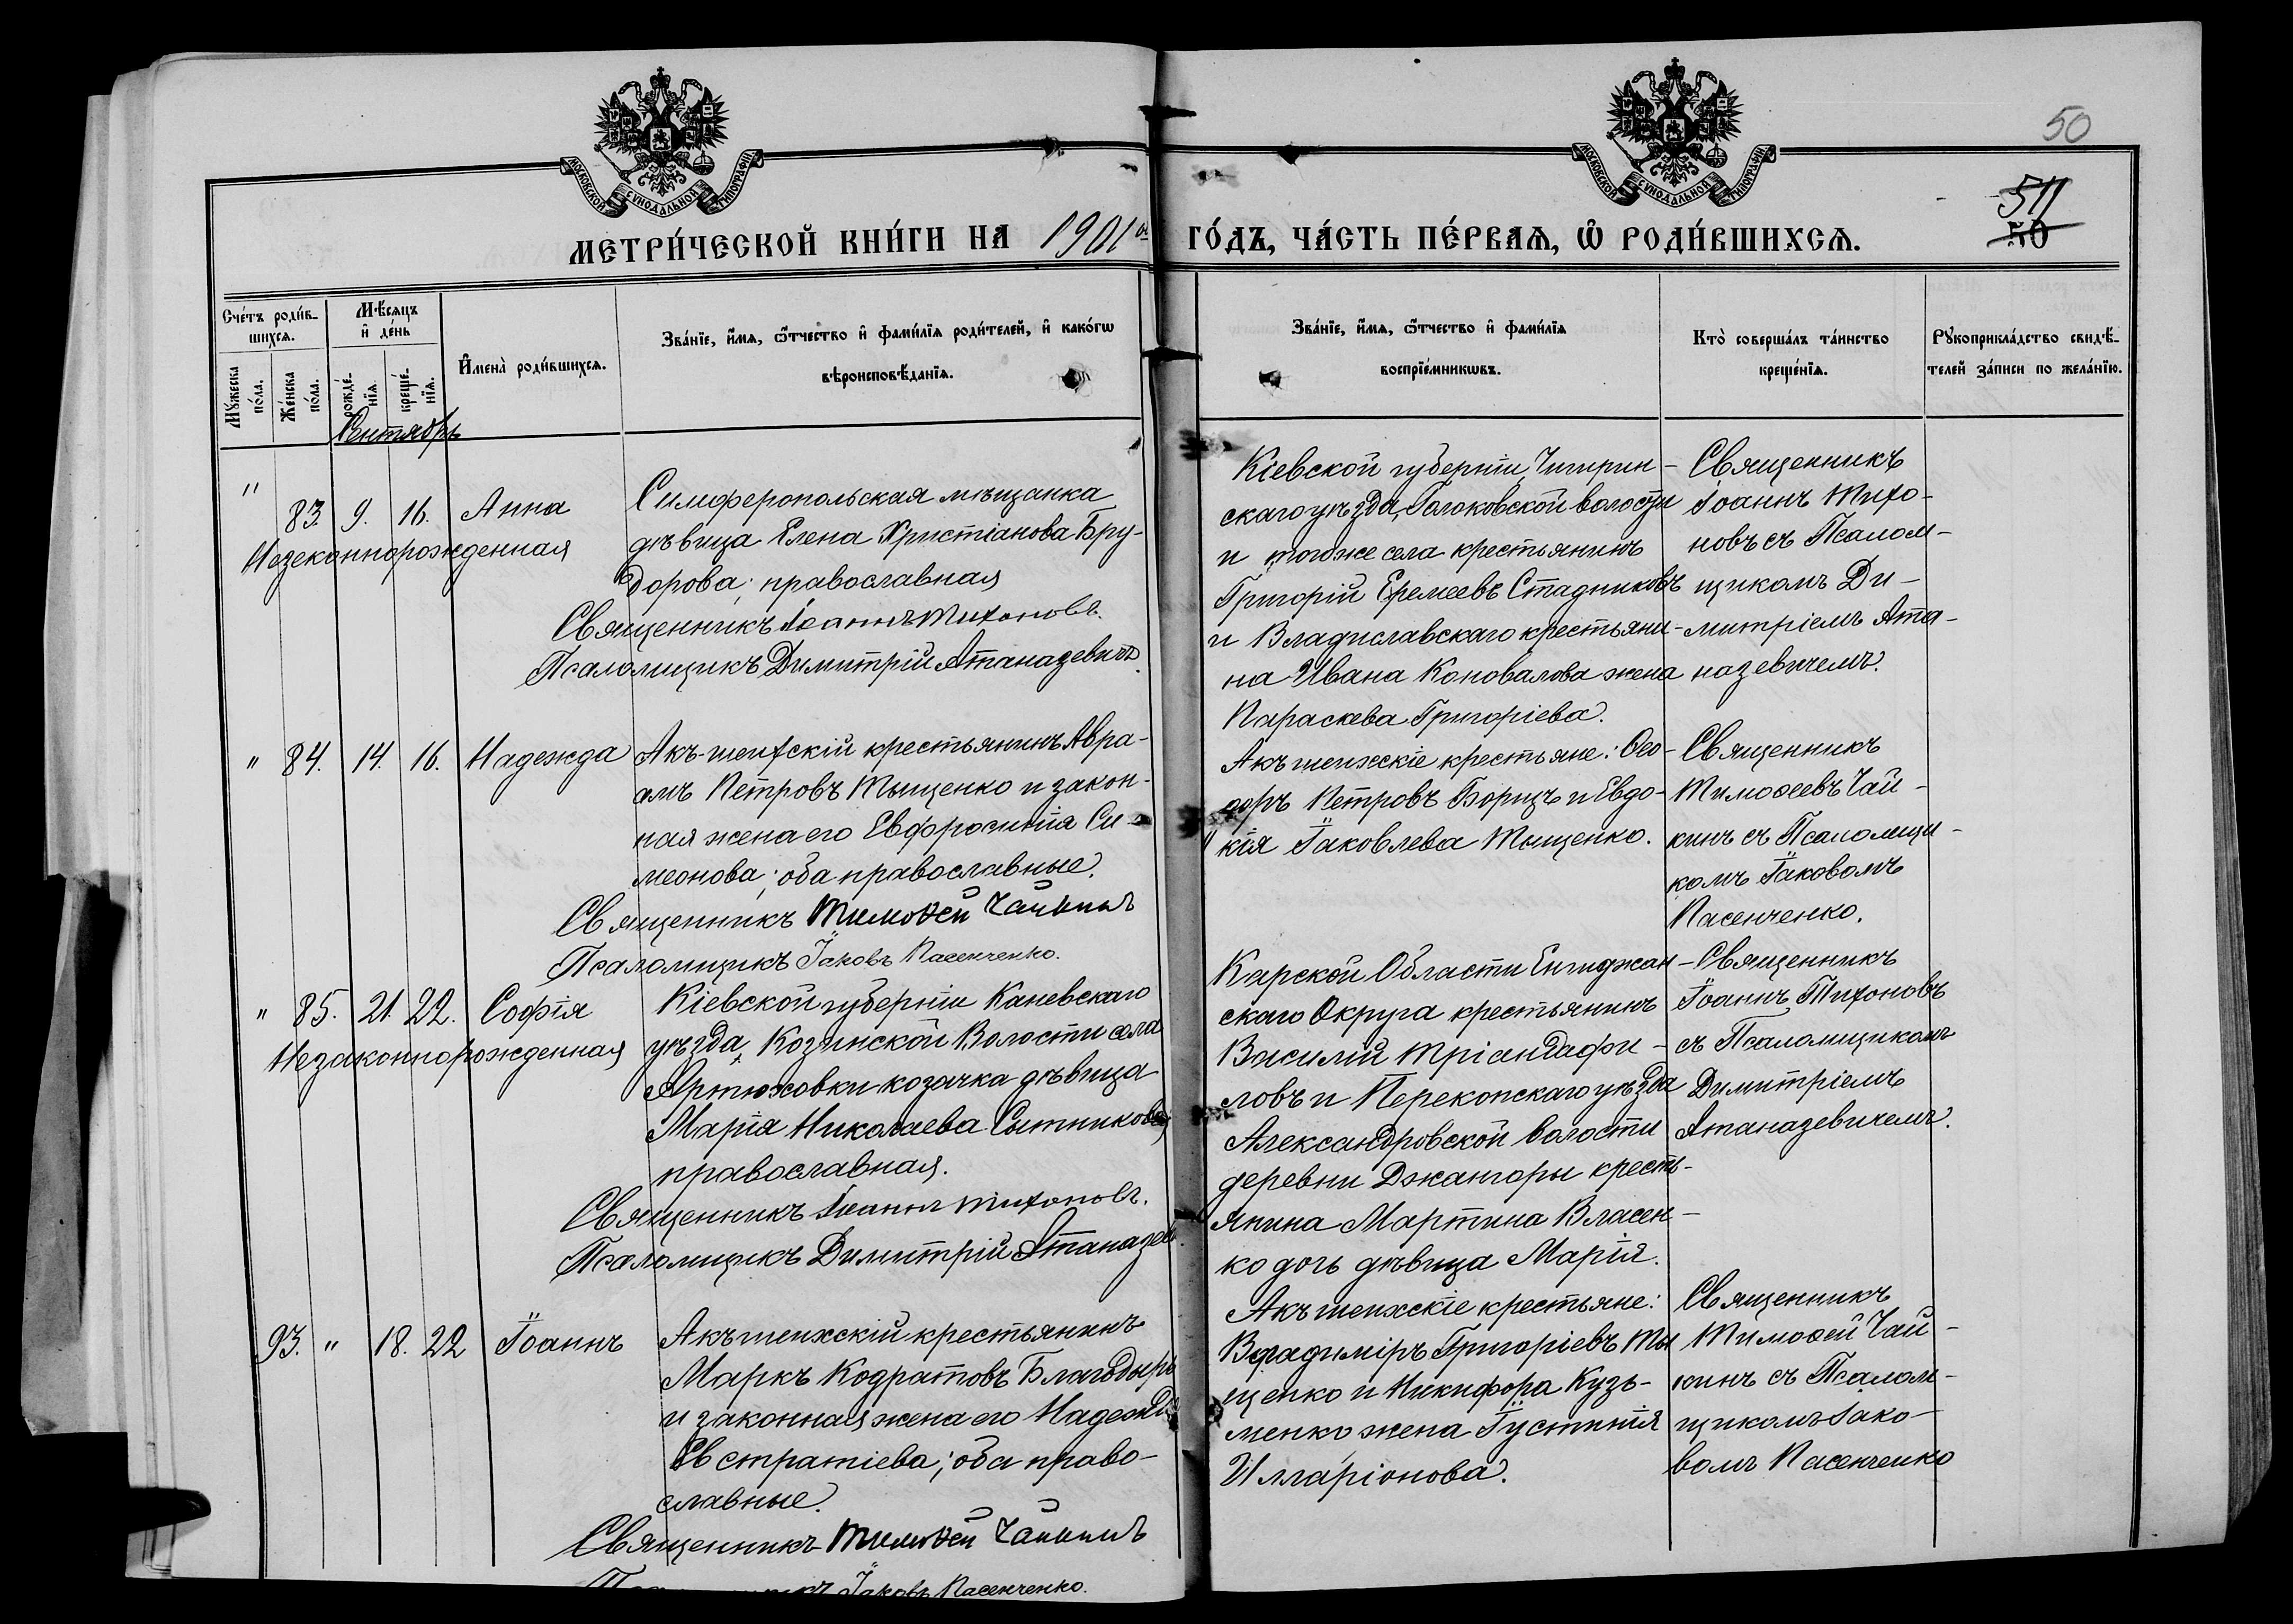 50
511
50
МОСКОВСКОЙ СѴНОДАЛЬНОЙ ТИПОГРАФІИ
МОСКОВСКОЙ СѴНОДАЛЬНОЙ ТИПОГРАФІИ
МЕТРИ́ЧЕСКОЙ КНИ́ГИ НА 1901 ГО́ДЪ, ЧА́СТЬ ПЕ́РВАѦ, Ѡ РОДИ́ВШИХСѦ.
Сче́тъ роди́в-
шихсѧ.
Му́жеска
по́ла.
Же́нска
по́ла.
Мѣ́сяцъ
и҆ де́нь
рожде́-
нїѧ.
креще́-
нїѧ.
И҆мена̀ роди́вшихсѧ.
Зва́нїе, и҆́мѧ, ѻ҆́тчество и҆ фами́лїѧ роди́телей, и҆ како́гѡ
вѣроисповѣ́данїѧ.
Зва́нїе, и҆́мѧ, ѻ҆́тчество и҆ фами́лїѧ
воспрїе́мникѡвъ.
Кто̀ соверша́лъ та́инство
креще́нїѧ.
Рꙋкоприкла́дство свидѣ́-
телей за́писи по жела́нїю.
Сентябрь
" 83. 9. 16. Анна
Незеконнорожденная
Симферопольская мѣщанка
дѣвица Елена Христіанова Бру-
дорова; православная
Священникъ Іоаннъ Тихоновъ.
Псаломщикъ Димитрій Атаназевичъ.
Кіевской губерніи, Чигирин-
скаго уѣзда, Голоковской волости
и тогоже села крестьянинъ
Григорій Еремеевъ Стадниковъ
и Владиславскаго крестьяни-
на Ивана Коновалова жена
Параскева Григоріева.
Священникъ
Іоаннъ Тихо-
новъ съ Псалом-
щикомъ Ди-
митріемъ Ата-
назевичемъ.
" 84. 14. 16. Надежда
Акъ-шеихскій крестьянинъ Авра-
амъ Петровъ Тыщенко и закон-
ная жена его Евфросинія Си-
меонова; оба православные.
Священникъ Тимоѳей Чайкинъ
Псаломщикъ Іаковъ Пасенченко.
Акъ шеихскіе крестьяне: Ѳео-
доръ Петровъ Борщъ и Евдо-
кія Іаковлева Тыщенко.
Священникъ
Тимоѳеевъ Чай-
кинъ съ Псаломщи-
комъ Іаковомъ
Пасенченко.
" 85. 21. 22. Софія
Незаконнорожденная
Кіевской губерніи Каневскаго
уѣзда, Козинской Волости села
Артюховки козачка дѣвица
Марія Николаева Сытникова;
православная.
Священникъ Іоаннъ Тихоновъ.
Псаломщикъ Димитрій Атаназев.
Карской Области Енгиджан-
скаго Округа крестьянинъ
Василій Тріандафи-
ловъ и Перекопскаго уѣзда
Александровской волости
деревни Джангоры кресть-
янина Мартина Власен-
ко дочь дѣвица Марія.
Священникъ
Іоаннъ Тихоновъ
съ Псаломщикомъ
Димитріемъ
Атаназевичемъ.
93. " 18. 22 Іоаннъ
Акъ шеихскій крестьянинъ
Маркъ Кодратовъ Благодыръ
и законная жена его Надежда
Евстратіева; оба право-
славные.
Священникъ Тимоѳей Чайкинъ
Іаковъ Пасенченко.
Акъ шеихскіе крестьяне:
Владиміръ Григоріевъ Ты
щенко и Никифора Кузь-
менко жена Іустинія
Илларіонова.
Священникъ
Тимоѳей Чай-
кинъ съ Псалом-
щикомъ Іако-
вомъ Пасенченко